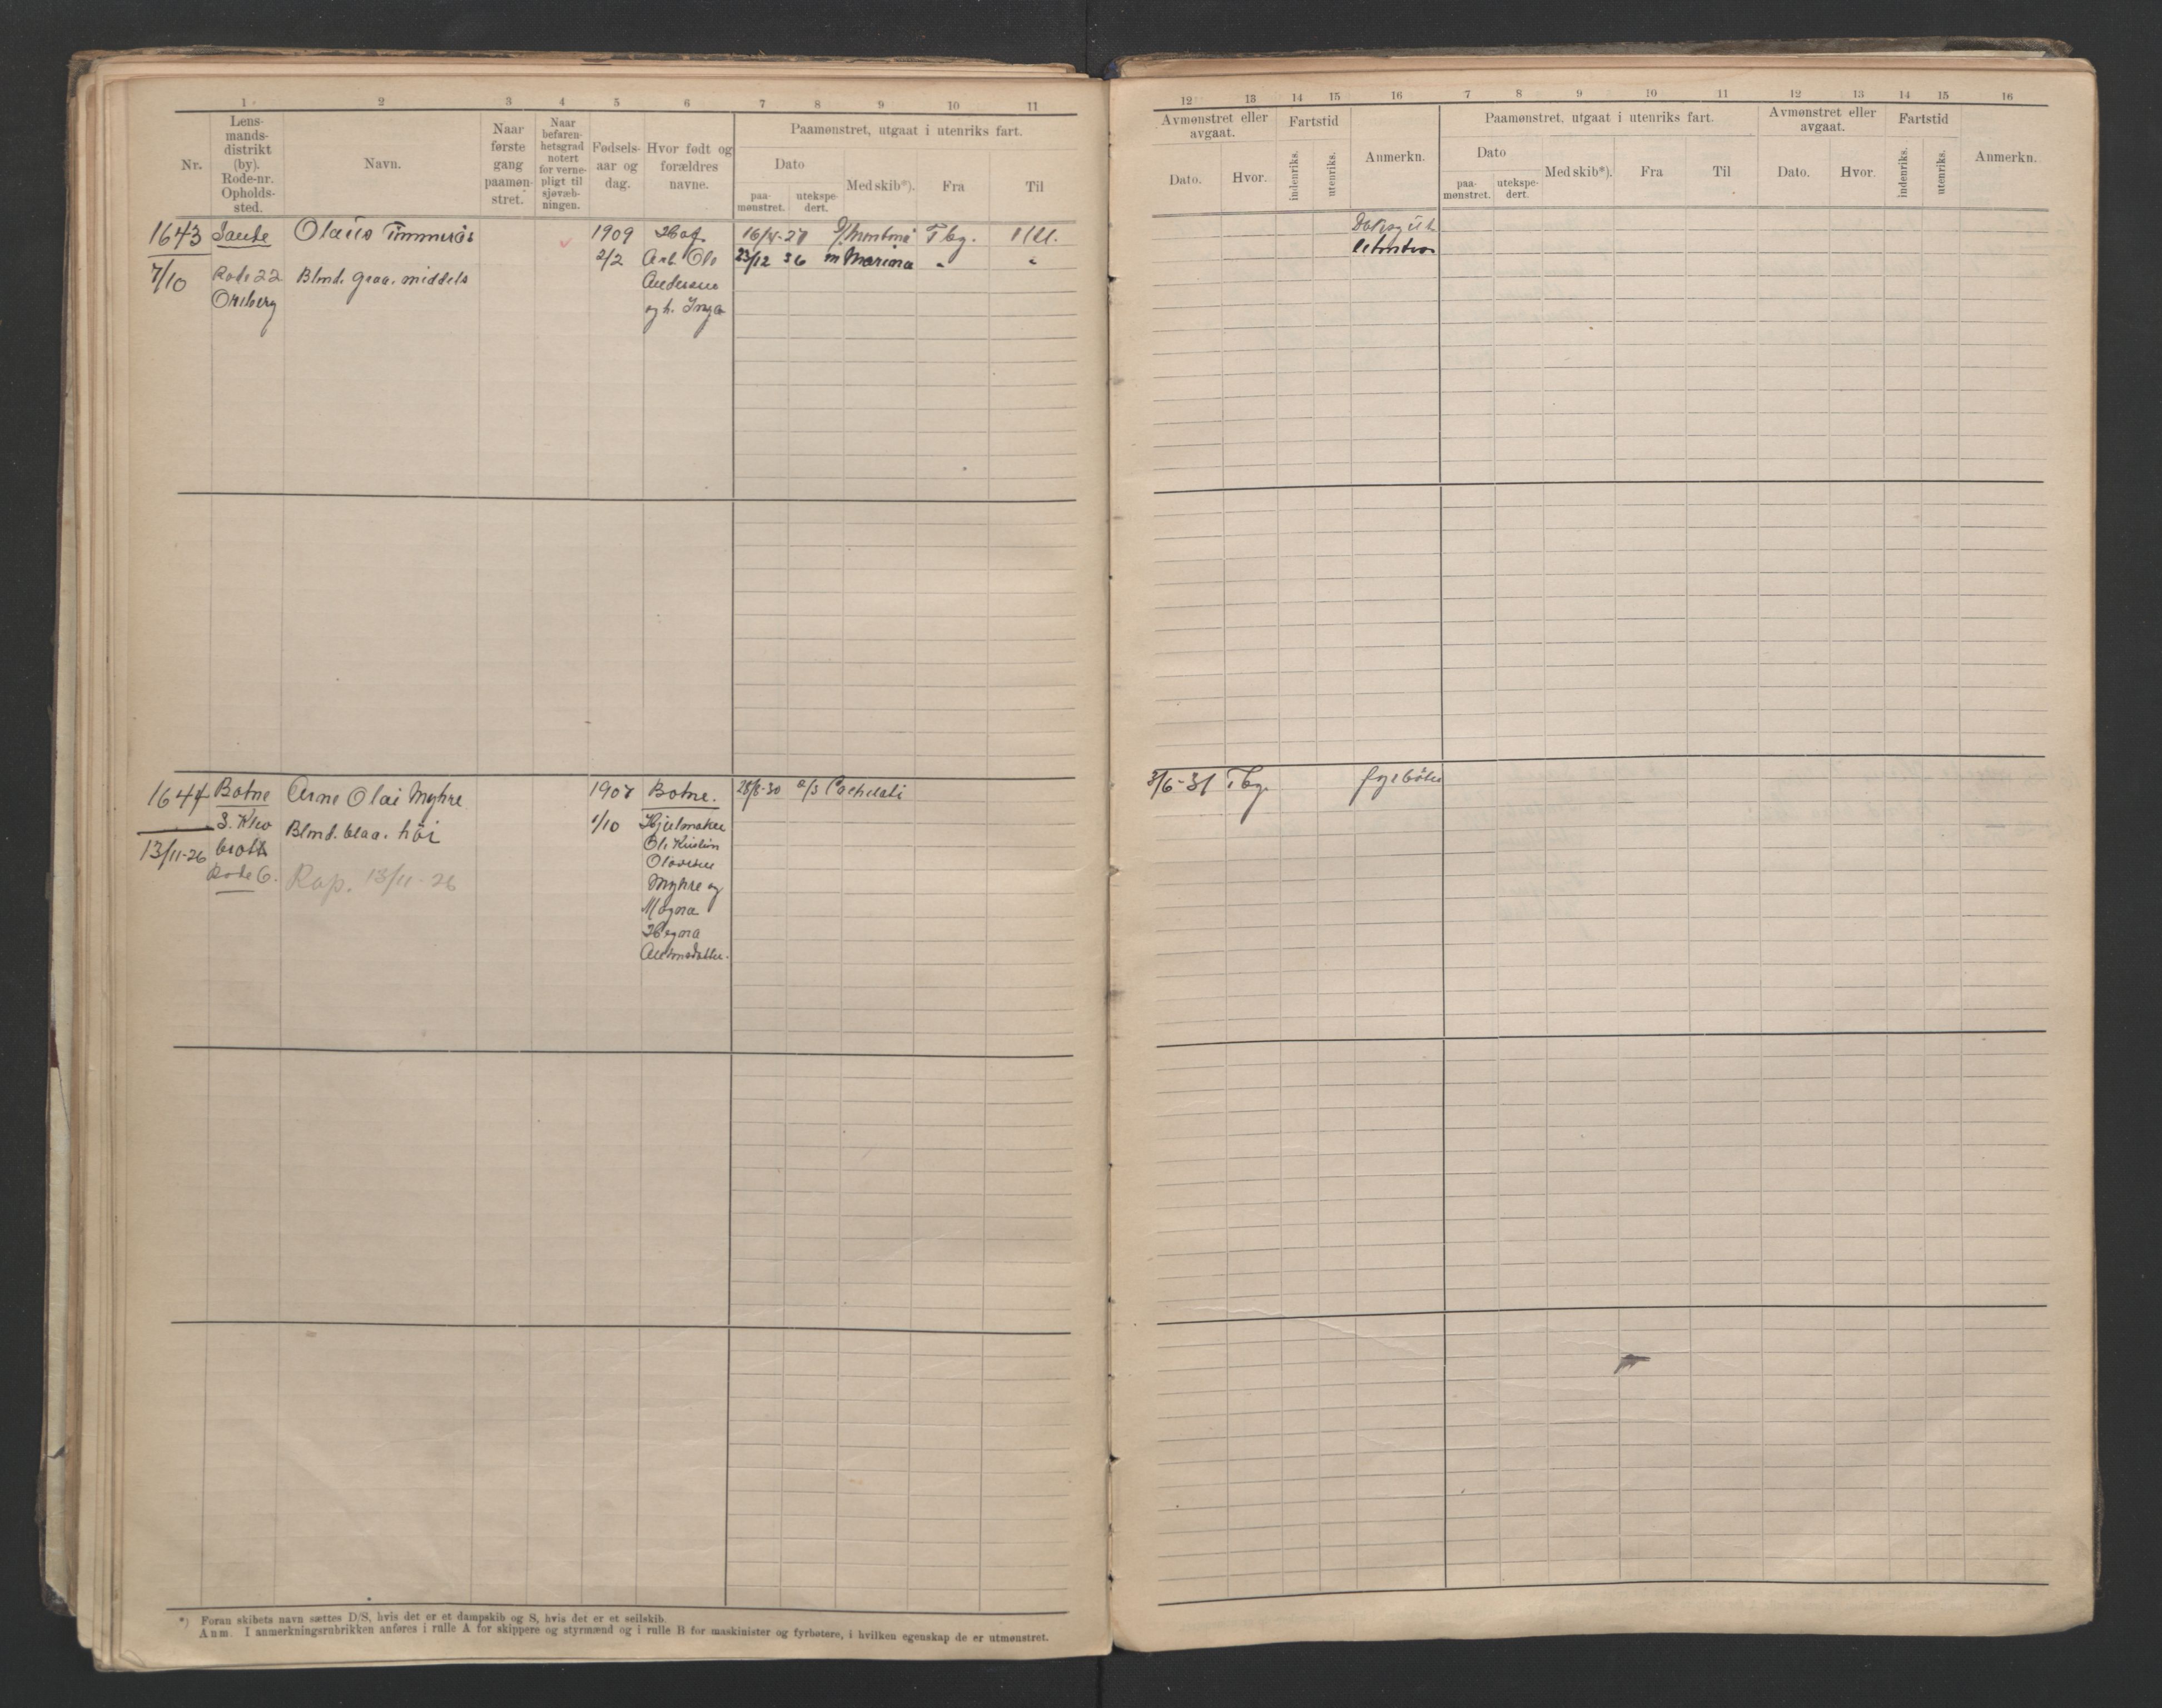 1 2 3 4 5 6 7 8 9 10 11
Nr.
Lens-
mands-
distrikt
(by).
Rode-nr.
Opholds-
sted.
Navn.
Naar
første
gang
paamøn-
stret.
Naar
befaren-
hetsgrad
notert
for verne-
pligt til
sjøvæb-
ningen.
Fødsels-
aar og
dag.
Hvor født og
forældres
navne.
Paamønstret, utgaat i utenriks fart.
Dato
paa-
mønstret.
utekspe-
dert.
Med skib*).
Fra
Til
1643 Sande Olaus 1909 Hof 16/4-27 Tbg.
7/10 Rode 22 Blmd. graa. middels 2/2 Arb. Ole 23/12 36 m Marina "  "
Andersen
og h. Inga
1644 Botne Arne Olai Myhre 1907 Botne. 28/8-30
13/11-26 Blmd. blaa. høi 1/10
Rode 6. Rap. 13/11-26
Ole Kristian
Myhre og
Magna
*) Foran skibets navn sættes D/S, hvis det er et dampskib og S, hvis det er et seilskib.
Anm. I anmerkningsrubrikken anføres i rulle A for skippere og styrmænd og i rulle B for maskinister og fyrbøtere, i hvilken egenskap de er utmønstret.
12 13 14 15 16 7 8 9 10 11 12 13 14 15 16
Avmønstret eller
avgaat.
Dato. Hvor.
Fartstid
indenriks.
utenriks.
Anmerkn.
Paamønstret, utgaat i utenriks fart.
Dato
paa-
mønstret.
utekspe-
dert.
Med skib*).
Fra
Til
Avmønstret eller
avgaat.
Dato. Hvor.
Fartstid
indenriks.
utenriks.
Anmerkn.
3/6-31 Tbg. fyrbøter